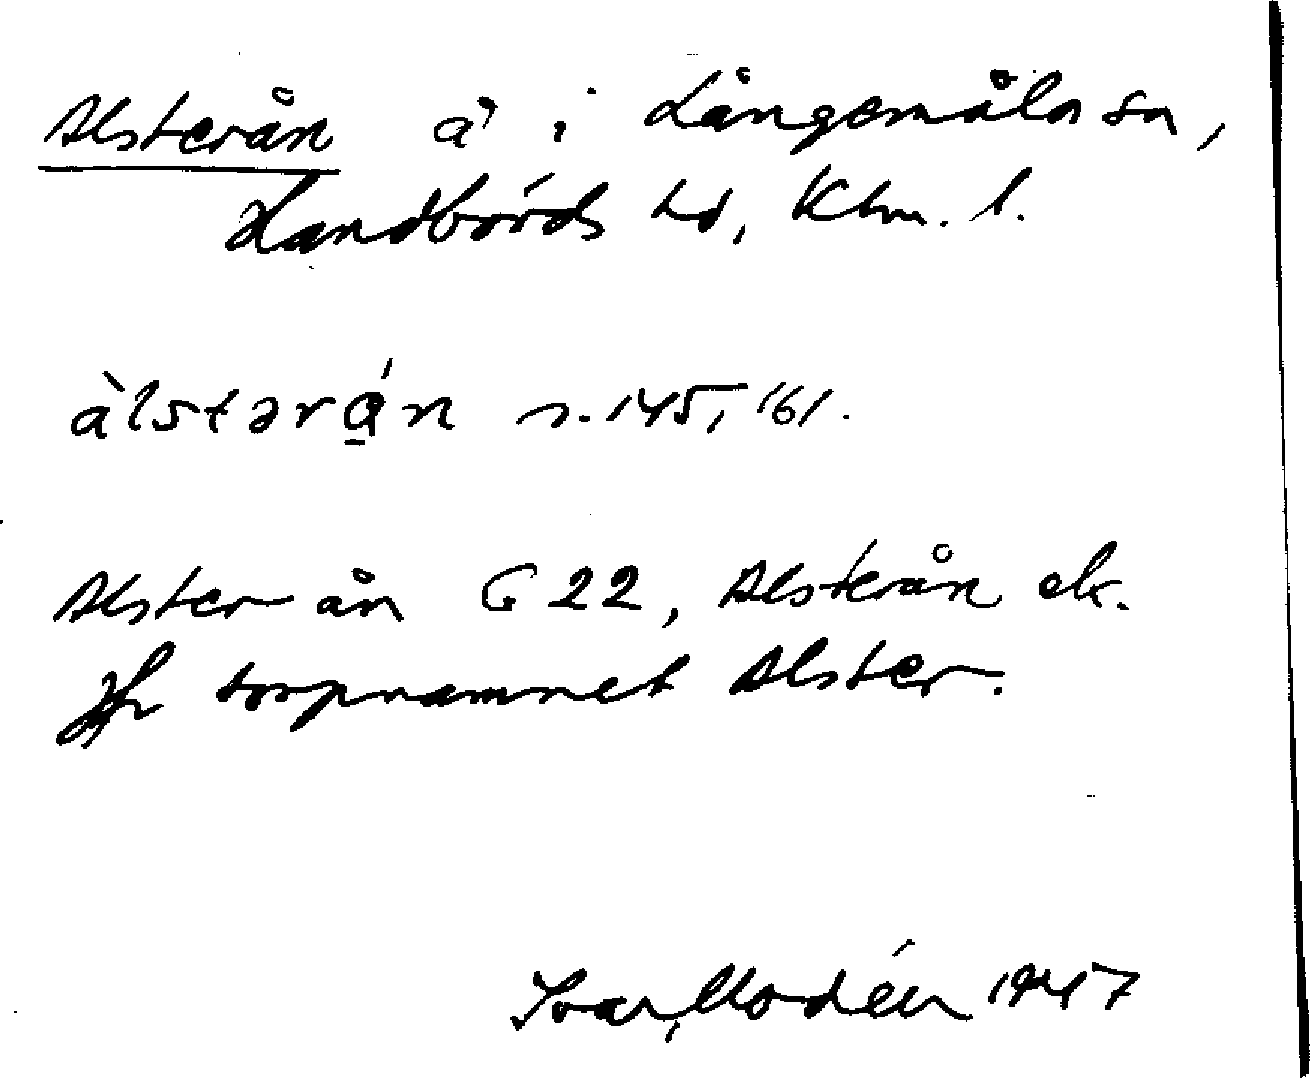 Alsterån å i Långemåla sn,
Handbörds hd, Klm. l.
àlstərán s. 145, 161.
Alster ån G 22, Alsterån ek.
Jfr torpnamnet Alster.
Ivar Modéer 1947